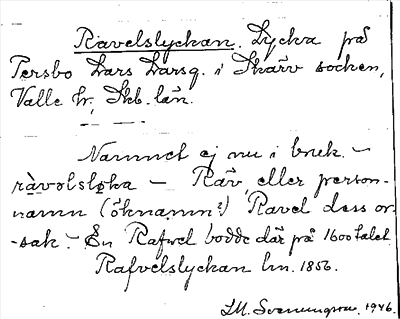 Ravelslyckan. Lycka på
Persbo Lars Larsg. i Skärv socken,
Valle hr, Skb. län.
Namnet ej nu i bruk. –
– Räv, eller person-
namn (öknamn?) Ravel dess or-
-sak. – En Rafvel bodde där på 1600 talet.
Rafvelslyckan lm. 1856.
1946.